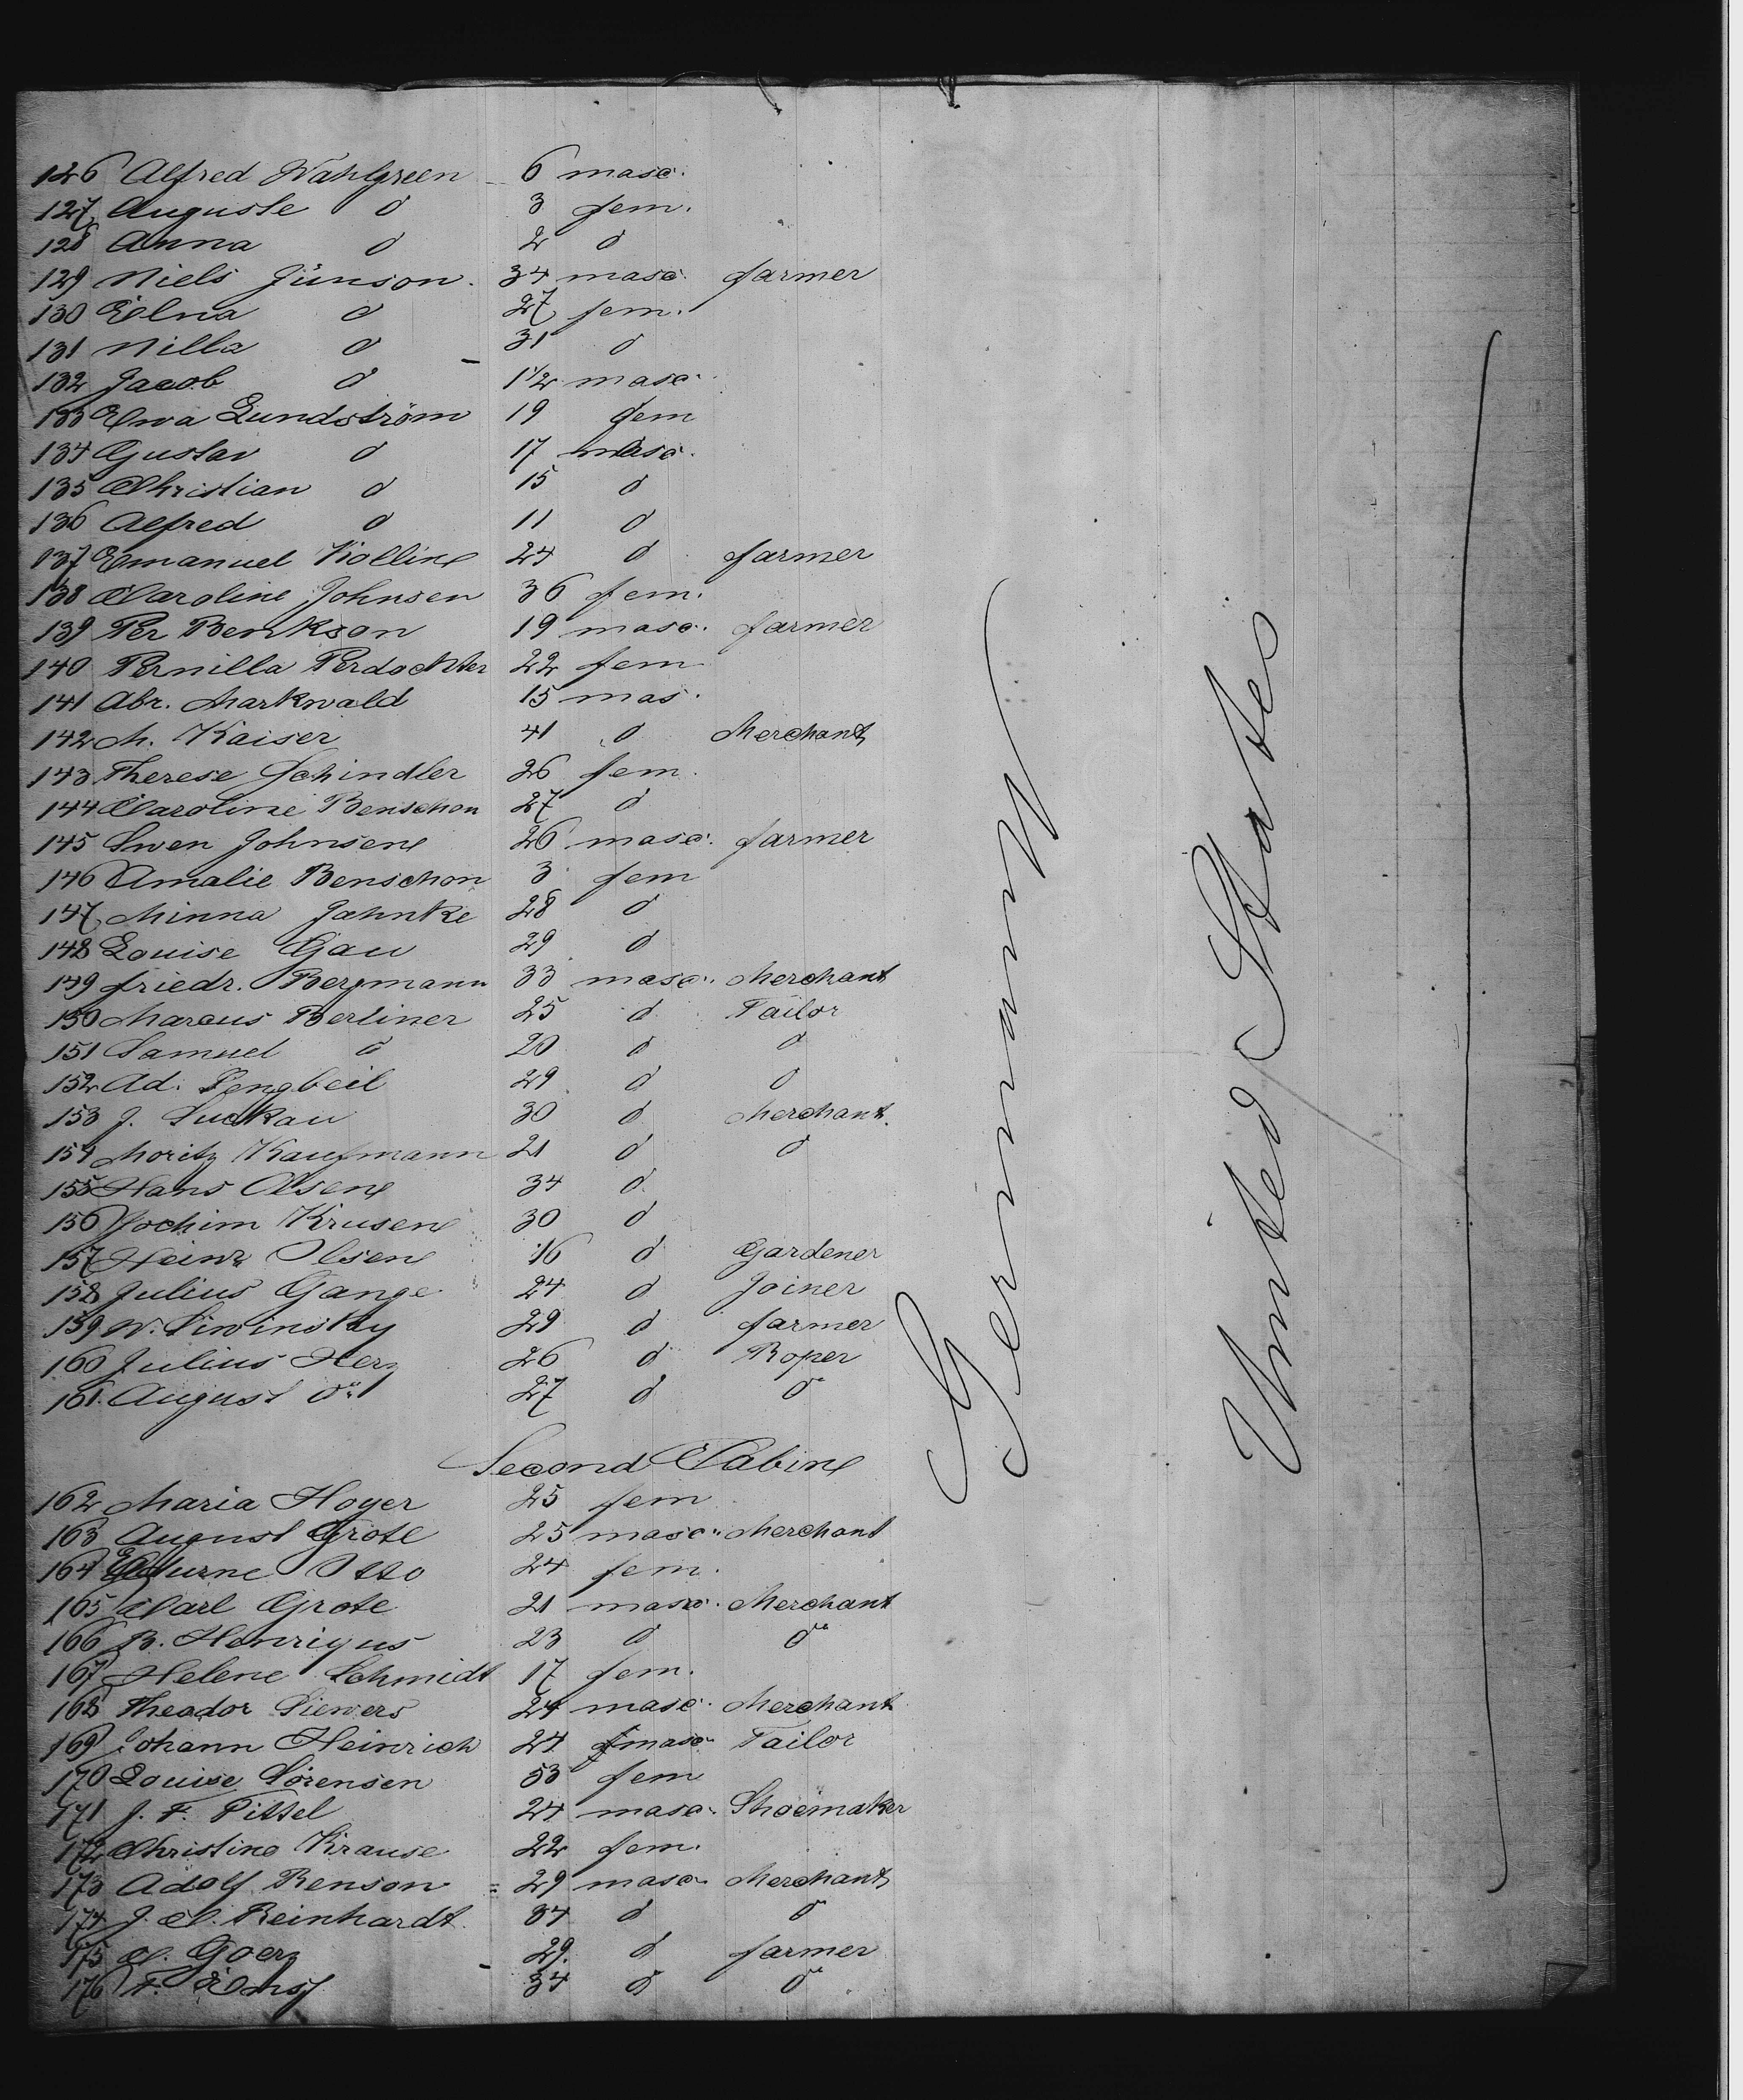 126 Alfred Wahlgreen 6 masc.
127 Auguste d 3 fem.
128 Anna d 2 d
129 Niels Jünson. 34 masc. farmer
130 Elna d 27 fem.
131 Nilla d 31 d
132 Jacob d 1 1/2 masc.
133 Elna Lundström 19 fem
134 Gustav d 17 masc.
135 Christian d 15 d
136 Alfred d 11 d
137 Emanuel Kolline 24 d farmer
138 Caroline Johnsen 36 fem.
139 Per Benkson 19 masc. farmer
140 Pernilla Perdochter 22 fem
141 Abr. Markwald 15 mas.
142 M. Kaiser 41 d Merchant
143 Therese Schindler 26 fem.
144 Caroline Benschon 27 d
145 Swen Johnsen 26 masc. farmer
146 Amalie Benschon 3 fem
147 Minna Jahnke 28 d
148 Louise Gau 29 d
149 friedr. Bergmann 33 masc. Merchant
150 Marcus Berliner 25 d Tailor
151 Samuel d 20 d d
152 Ad. Sengbeil 29 d d
153 J. Suckau 30 d Merchant.
154 Moritz Kaufmann 21 d d
155 Hans Olsen 34 d
156 Jochim Krusen 30 d
157 Heinr Olsen 16 d Gardener
158 Julius Gange 24 d Joiner
159 W. Siwinsky 29 d farmer
160 Julius Herz 26 d Roper
161. August do 27 d do
Second Cabin
162 Maria Hoyer 25 fem
163 August Grote 25 masc. Merchant
164 Otto 24 fem.
165 Carl Grote 21 masc. Merchant
166 B. Henriqus 23 d do
167 Helene Schmidt 17 fem.
168 Theodor Siewers 24 masc. Merchant
169 Johann Heinrich 24 masc. Tailor
170 Louise Sörensen 53 fem
171 J. F. Pittel 24 masc. Shoemaker
172 Christine Krause 22 fem.
173 Adolf Renson 29 masc. Merchant
174 J. C. Reinhardt. 34 d do
175 C. Goerz 29. d farmer
176 F. 34 d do
Germany
United States